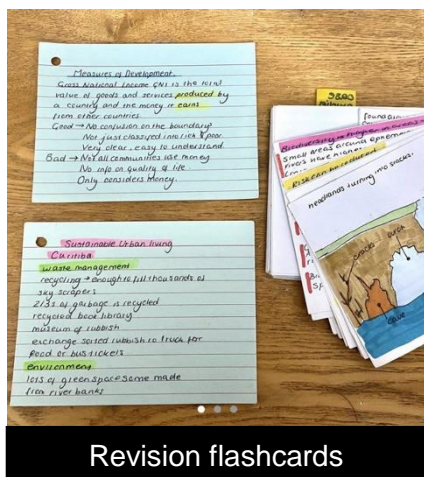 Measures of Development.
Gross National Income GNI is the total
value of goods and services produced by
a country and the money it earns
from other countries
Good → No confusion on the boundary
Not just classified into rich & poor
Very clear, easy to understand
Bad → Not all communities use money
No info on quality of life
Only considers money.
Sustainable Urban living
Curitiba
waste management
recycling → enough to fill thousands of
sky scrapers
2/3s of garbage is recycled
recycled book library
museum of rubbish
exchange sorted rubbish to truck for
food or bus tickets
environment
lots of green space some made
from river banks
Biodiversity is higher in areas
small areas around
rivers have higher
Risk can be reduced
headlands turning into stacks.
cracks
arch
cave
Revision flashcards